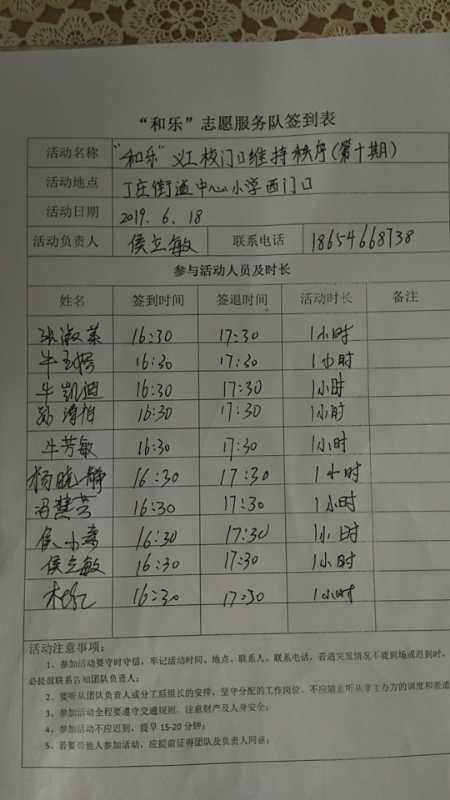 “和乐”志愿服务队签到表
活动名称 “和乐”义工校门口维持秩序(第十期)
活动地点 丁庄街道中心小学西门口
活动日期 2019.6.18
活动负责人 侯立敏 联系电话 18654668738
参与活动人员及时长
姓名 签到时间 签退时间 活动时长 备注
张淑荣 16:30 17:30 1小时
牛 16:30 17:30 1小时
牛凯迪 16:30 17:30 1小时
16:30 17:30 1小时
牛芳敏 16:30 17:30 1小时
杨晓静 16:30 17:30 1小时
16:30 17:30 1小时
侯小 16:30 17:30 1小时
侯立敏 16:30 17:30 1小时
16:30 17:30 1小时
活动注意事项:
1、参加活动要守时守信,牢记活动时间、地点、联系人、联系电话,若遇突发情况不能到场或迟到时,
必提前联系告知团队负责人;
2、要听从团队负责人或分工后组长的安排,坚守分配的工作岗位,不应随意听从非主办方的调度和差遣
3、参加活动全程要遵守交通规则,注意财产及人身安全;
4、参加活动不应迟到,提早 15-20 分钟;
5、若要带他人参加活动,应提前征得团队及负责人同意;